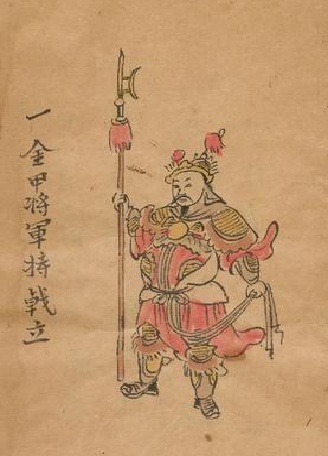 一金甲將軍持戟立